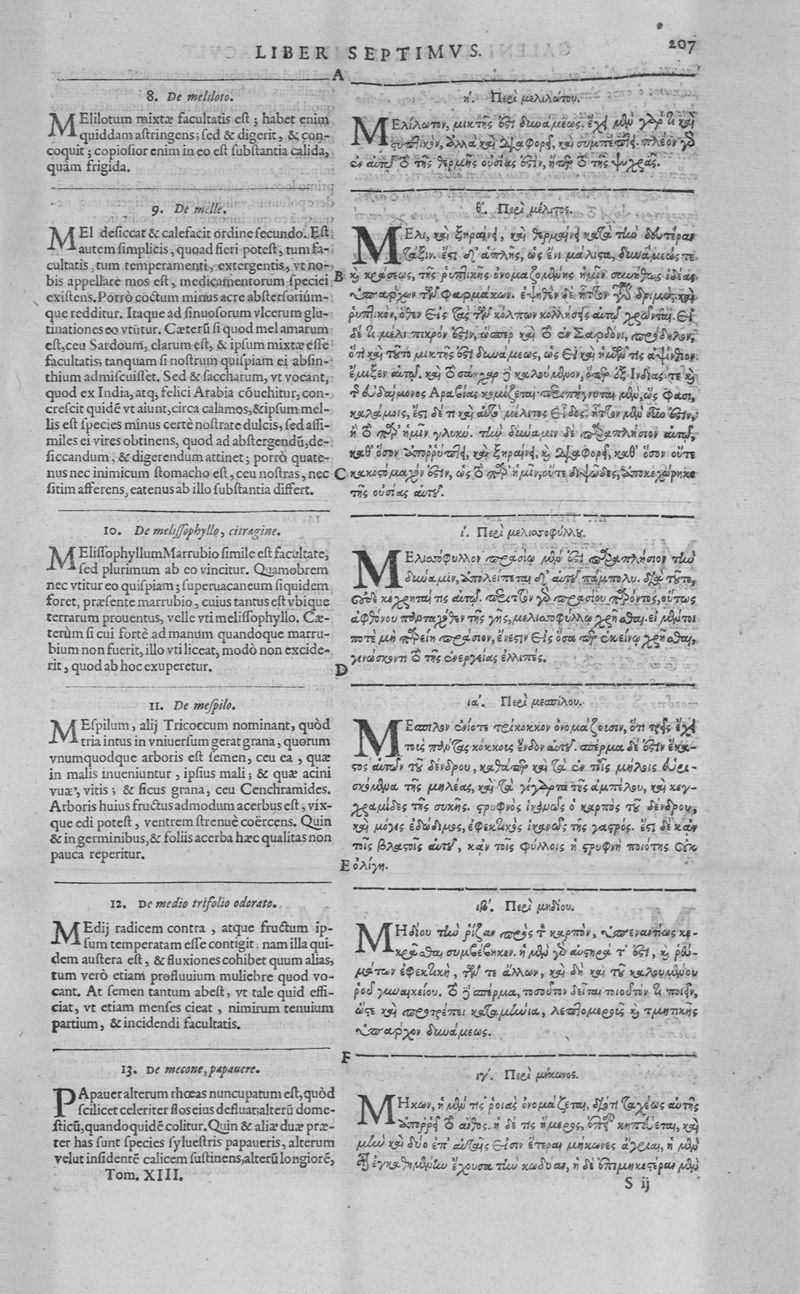 LIBER SEPTIMVS.
207
A
8. De meliloto.
MElilotum mixtæ facultatis est; habet enim
quiddam astringens; sed & digerit, & con-
coquit; copiosior enim in eo est substantia calida,
quàm frigida.
9. De melle.
MEl desiccat & calefacit ordine secundo. Est
autem simplicis, quoad fieri potest, tum fa-
cultatis, tum temperamenti, extergentis, vt no-
bis appellare mos est, medicamentorum speciei
existens. Porrò cōctum minus acre abstersorium-
que redditur. Itaque ad sinuosorum vlcerum glu-
tinationes eo vtūtur. Cæterū si quod mel amarum
est, ceu Sardoum, clarum est, & ipsum mixtæ esse
facultatis; tanquam si nostrum quispiam ei absin-
thium admiscuisset. Sed & saccharum, vt vocant,
quod ex India, atq; felici Arabia cōuehitur, con-
crescit quidē vt aiunt, circa calamos, & ipsum mel-
lis est species minus certè nostrate dulcis, sed assi-
miles ei vires obtinens, quod ad abstergendū, de-
siccandum, & digerendum attinet; porrò quate-
nus nec inimicum stomacho est, ceu nostras, nec
sitim afferens, eatenus ab illo substantia differt.
10. De melissophyllo, citragine.
MElissophyllum Marrubio simile est facultate,
sed plurimum ab eo vincitur. Quamobrem
nec vtitur eo quispiam; superuacaneum siquidem
foret, præsente marrubio, cuius tantus est vbique
terrarum prouentus, velle vti melissophyllo. Cæ-
terùm si cui fortè ad manum quandoque marru-
bium non fuerit, illo vti liceat, modò non excide-
rit, quod ab hoc exuperetur.
11. De mespilo.
MEspilum, alij Tricoccum nominant, quòd
tria intus in vniuersum gerat grana, quorum
vnumquodque arboris est semen, ceu ea, quæ
in malis inueniuntur, ipsius mali; & quæ acini
vuæ, vitis; & ficus grana, ceu Cenchramides.
Arboris huius fructus admodum acerbus est, vix-
que edi potest, ventrem strenuè coërcens. Quin
& in germinibus, & foliis acerba hæc qualitas non
pauca reperitur.
12. De medio trifolio odorato.
MEdij radicem contra, atque fructum ip-
sum temperatam esse contigit; nam illa qui-
dem austera est, & fluxiones cohibet quum alias,
tum verò etiam profluuium muliebre quod vo-
cant. At semen tantum abest, vt tale quid effi-
ciat, vt etiam menses cieat, nimirum tenuium
partium, & incidendi facultatis.
13. De mecone, papauere.
PApauer alterum rhœas nuncupatum est, quòd
scilicet celeriter flos eius defluat; alterū dome-
sticū, quando quidē colitur. Quin & aliæ duæ præ-
ter has sunt species syluestris papaueris, alterum
velut insidentē calicem sustinens, alterū longiorē,
Tom. XIII.
B
C
D
E
F
η΄. Περὶ μελιλώτου.
ΜΕλίλωτον, μικτῆς ἐστὶ δυνάμεως. ἔχει μὲν γάρ τι καὶ
στυπτικὸν, ἀλλὰ καὶ διαφορεῖ, καὶ συμπέττει. πλέον γὰρ
ἐν αὐτῷ τὸ τῆς θερμῆς οὐσίας ἐστὶν, ἤπερ τὸ τῆς ψυχρᾶς.
θ΄. Περὶ μέλιτος.
ΜΕλι, καὶ ξηραίνει, καὶ θερμαίνει κατὰ τὴν δευτέραν
τάξιν. ἔστι δ' ἁπλῆς, ὡς ἔνι μάλιστα, δυνάμεώς τε
καὶ κράσεως, τῆς ῥυπτικῆς ὀνομαζομένης ἡμῖν συνήθως ἰδέας
ὑπάρχον τῶν φαρμάκων. ἑψηθὲν δὲ ἧττον δριμὺ, καὶ
ῥυπτικὸν, ὅθεν εἰς τὰς τῶν κόλπων κολλήσεις αὐτῷ χρῶνται. εἰ
δέ τι μέλι πικρόν ἐστιν, ὥσπερ καὶ τὸ ἐν Σαρδόνι, πρόδηλον,
ὅτι καὶ τοῦτο μικτῆς ἐστὶ δυνάμεως, ὡς εἰ καὶ ἡμῶν τις ἀψίνθιον
ἔμιξεν αὐτῷ. καὶ τὸ σάκχαρ δὲ καλούμενον, ὅπερ ἐξ Ἰνδίας τε καὶ
τῆς εὐδαίμονος Ἀραβίας κομίζεται, περιπήγνυται μὲν, ὡς φασι,
καλάμοις, ἔστι δέ τι καὶ αὐτὸ μέλιτος εἶδος. ἧττον μὲν οὖν ἐστιν,
ἢ τὸ παρ' ἡμῖν γλυκύ. τὴν δύναμιν δὲ παραπλήσιον αὐτῷ,
καθ' ὅσον ἀπορρύπτει, καὶ ξηραίνει, καὶ διαφορεῖ, καθ' ὅσον οὔτε
κακοστόμαχόν ἐστιν, ὡς τὸ παρ' ἡμῖν, οὔτε διψῶδες, ἀποκεχώρηκε
τῆς οὐσίας αὐτοῦ.
ι΄. Περὶ μελισσοφύλλου.
ΜΕλισσόφυλλον πρασίῳ μέν ἐστι παραπλήσιον τὴν
δύναμιν, ἀπολείπεται δ' αὐτοῦ πάμπολυ. διὰ τοῦτο,
οὐδὲ κέχρηταί τις αὐτῷ. περιττὸν γὰρ πρασίου παρόντος, οὕτως
ἀφθόνου πανταχόθεν τῆς γῆς, μελισσοφύλλῳ χρῆσθαι. εἰ μέντοι
ποτὲ μὴ παρείη πράσιον, ἔνεστιν εἰς ὅσα περ ἐκείνῳ χρῆσθαι,
γινώσκοντι τὸ τῆς ἐνεργείας ἐλλιπές.
ια΄. Περὶ μεσπίλου.
ΜΕσπιλον ἐνίοτε τρίκοκκον ὀνομάζουσιν, ὅτι τρεῖς ἔχει
τοὺς πάντας κόκκους ἔνδον αὐτοῦ. σπέρμα δέ ἐστιν ἕκα-
στος αὐτῶν τοῦ δένδρου, καθάπερ καὶ τὰ ἐν τοῖς μήλοις εὑρι-
σκόμενα τῆς μηλέας, καὶ τὰ γίγαρτα τῆς ἀμπέλου, καὶ κεγ-
χραμίδες τῆς συκῆς. στρυφνὸς ἱκανῶς ὁ καρπὸς τοῦ δένδρου,
καὶ μόγις ἐδώδιμος, ἐφεκτικὸς ἱκανῶς τῆς γαστρός. ἔστι δὲ κἀν
τοῖς βλαστοῖς αὐτοῦ, κἀν τοῖς φύλλοις ἡ στρυφνὴ ποιότης οὐκ
ὀλίγη.
ιβ΄. Περὶ μηδίου.
ΜΗδίου τὴν ῥίζαν πρὸς τὸν καρπὸν, ὑπεναντίως κε-
κρᾶσθαι συμβέβηκεν. ἡ μὲν γὰρ αὐστηρά τ' ἐστὶ, καὶ ῥευ-
μάτων ἐφεκτικὴ, τῶν τε ἄλλων, καὶ δὴ καὶ τοῦ καλουμένου
ῥοῦ γυναικείου. τὸ δὲ σπέρμα, τοσοῦτον δεῖται τοιοῦτόν τι ποιεῖν,
ὥστε καὶ προτρέπει καταμήνια, λεπτομεροῦς καὶ τμητικῆς
ὑπάρχον δυνάμεως.
ιγ΄. Περὶ μήκωνος.
ΜΗκων, ἡ μέν τις ῥοιὰς ὀνομάζεται, διότι ταχέως αὐτῆς
ἀπορρεῖ τὸ ἄνθος. ἡ δέ τις ἥμερος, κηπεύεται, καὶ
μὴν καὶ δύο ἐπ' αὐταῖς εἰσιν ἕτεραι μήκωνες ἄγριαι, ἡ μὲν
ἐγκαθημένην ἔχουσα τὴν κωδύαν, ἡ δὲ ἐπιμηκεστέραν μὲν
S ij